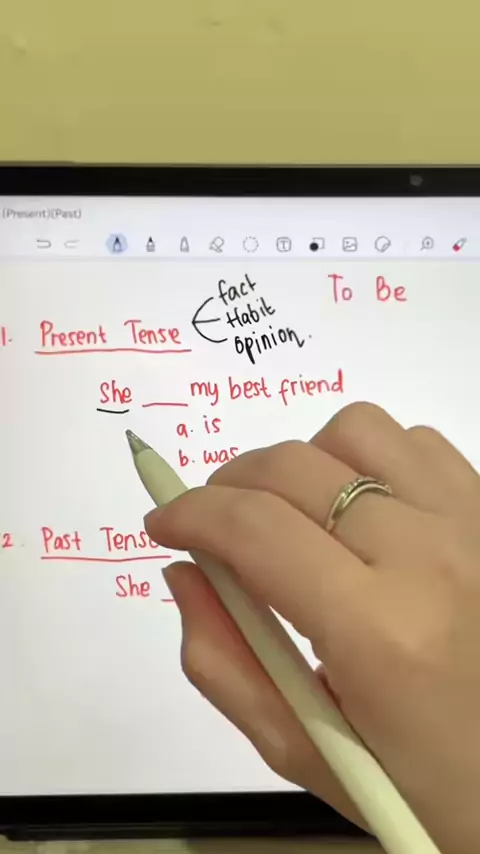 (Present)(Past)
To Be
1. Present Tense
fact
Habit
opinion.
She ___ my best friend
a. is
b. was
2. Past Tense
She _